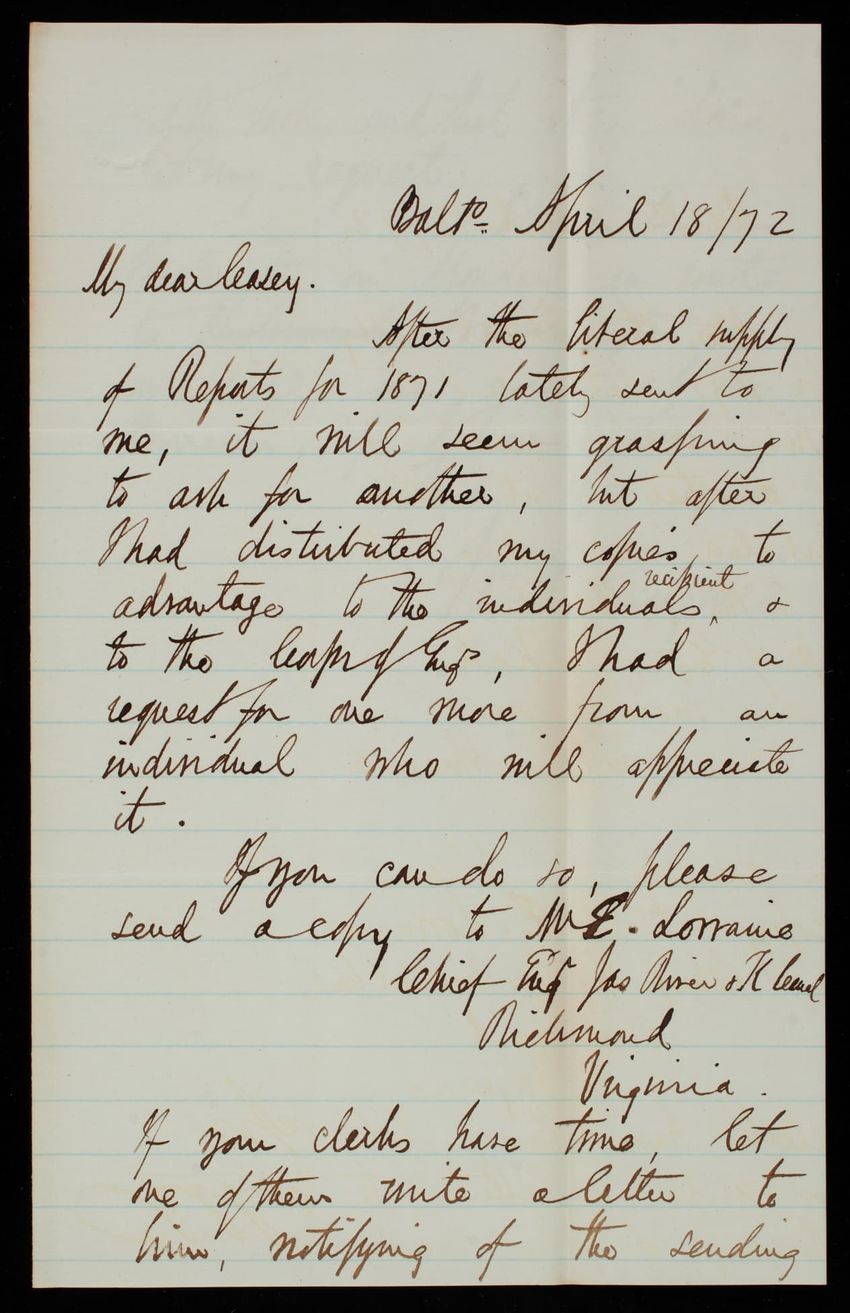 Balto. April 18/72
My dear Casey.
After the liberal supply
of Reports for 1871 lately sent to
me, it will seem grasping
to ask for another, but after
I had distributed my copies to
recipient
advantage to the individuals, &
to the Corps of Engrs, I had a
request for one more from an
individual who will appreciate
it.
If you can do so, please
send a copy to Mr E. Lorraine
Chief Engr Jas River & K Canal
Richmond
Virginia.
If your clerks have time, let
one of them write a letter to
him, notifying of the sending